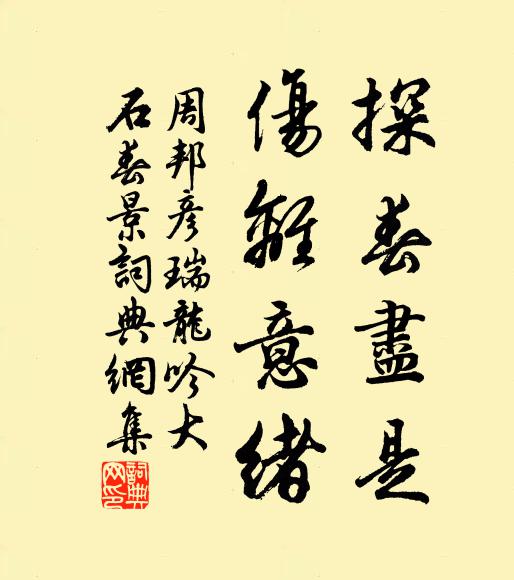 探春盡是
傷離意緒
周邦彥瑞龍吟大
石春景詞典網集
詞典
网印